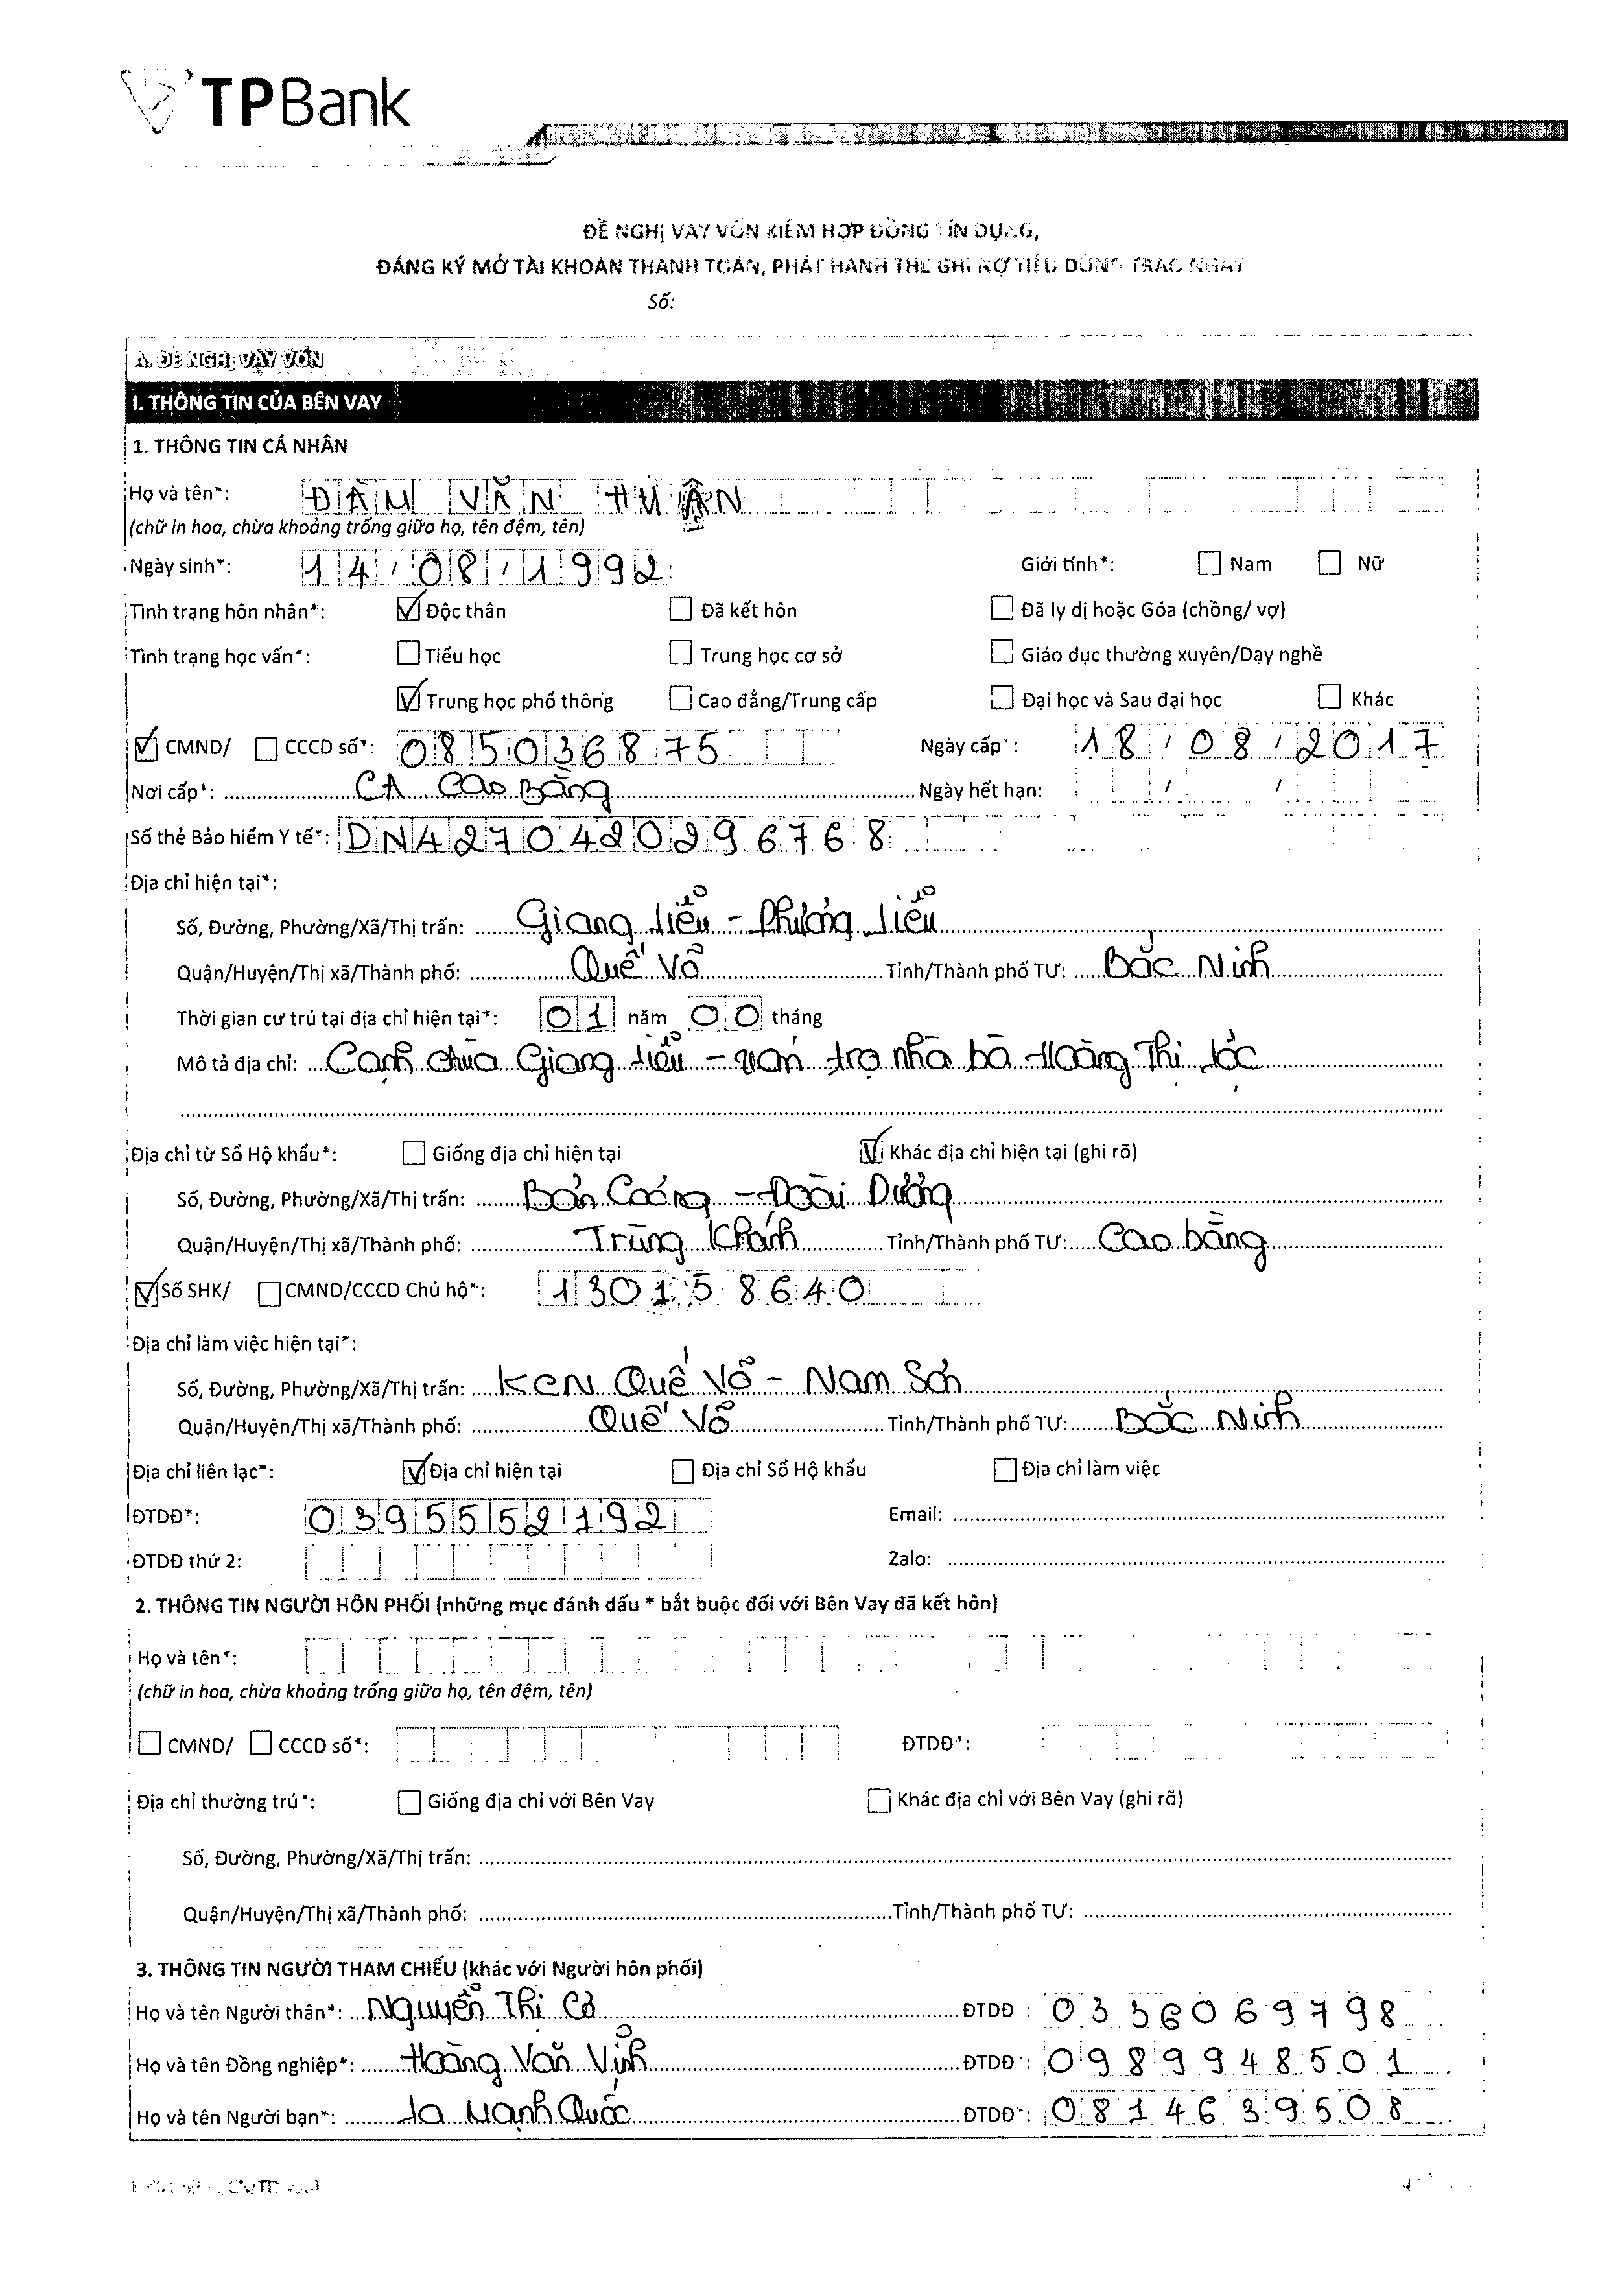 TPBank
ĐỀ NGHỊ VAY VỐN KIÊM HỢP ĐỒNG TÍN DỤNG,
ĐĂNG KÝ MỞ TÀI KHOẢN THANH TOÁN, PHÁT HÀNH THẺ GHI NỢ TIÊU DÙNG TRAO NGAY
Số:
A. ĐỀ NGHỊ VAY VỐN
I. THÔNG TIN CỦA BÊN VAY
1. THÔNG TIN CÁ NHÂN
Họ và tên*: ĐÀM VĂN HUÂN
(chữ in hoa, chừa khoảng trống giữa họ, tên đệm, tên)
Ngày sinh*: 14/08/1992 Giới tính*: Nam Nữ
Tình trạng hôn nhân*: Độc thân Đã kết hôn Đã ly dị hoặc Góa (chồng/ vợ)
Tình trạng học vấn*: Tiểu học Trung học cơ sở Giáo dục thường xuyên/Dạy nghề
Trung học phổ thông Cao đẳng/Trung cấp Đại học và Sau đại học Khác
CMND/ CCCD số*: 085036875 Ngày cấp*: 18/08/2017
Nơi cấp*: CA Cao Bằng Ngày hết hạn:
Số thẻ Bảo hiểm Y tế*: DN4270420296768
Địa chỉ hiện tại*:
Số, Đường, Phường/Xã/Thị trấn: Giang Liễu - Phương Liễu
Quận/Huyện/Thị xã/Thành phố: Quế Võ Tỉnh/Thành phố TƯ: Bắc Ninh
Thời gian cư trú tại địa chỉ hiện tại*: 01 năm 00 tháng
Mô tả địa chỉ: Cạnh chùa Giang Liễu - xóm trọ nhà bà Hoàng Thị Lộc
Địa chỉ từ Sổ Hộ khẩu*: Giống địa chỉ hiện tại Khác địa chỉ hiện tại (ghi rõ)
Số, Đường, Phường/Xã/Thị trấn: Bản Coỏng - Đoài Dương
Quận/Huyện/Thị xã/Thành phố: Trùng Khánh Tỉnh/Thành phố TƯ: Cao bằng
Số SHK/ CMND/CCCD Chủ hộ*: 130158640
Địa chỉ làm việc hiện tại*:
Số, Đường, Phường/Xã/Thị trấn: KCN Quế Võ - Nam Sơn
Quận/Huyện/Thị xã/Thành phố: Quế Võ Tỉnh/Thành phố TƯ: Bắc Ninh
Địa chỉ liên lạc*: Địa chỉ hiện tại Địa chỉ Sổ Hộ khẩu Địa chỉ làm việc
ĐTDĐ*: 0395552192 Email:
ĐTDĐ thứ 2: Zalo:
2. THÔNG TIN NGƯỜI HÔN PHỐI (những mục đánh dấu * bắt buộc đối với Bên Vay đã kết hôn)
Họ và tên*:
(chữ in hoa, chừa khoảng trống giữa họ, tên đệm, tên)
CMND/ CCCD số*: ĐTDĐ*:
Địa chỉ thường trú*: Giống địa chỉ với Bên Vay Khác địa chỉ với Bên Vay (ghi rõ)
Số, Đường, Phường/Xã/Thị trấn:
Quận/Huyện/Thị xã/Thành phố: Tỉnh/Thành phố TƯ:
3. THÔNG TIN NGƯỜI THAM CHIẾU (khác với Người hôn phối)
Họ và tên Người thân*: Nguyễn Thị Cò ĐTDĐ*: 0336069798
Họ và tên Đồng nghiệp*: Hoàng Văn Vịnh ĐTDĐ*: 0989948501
Họ và tên Người bạn*: La Mạnh Quốc ĐTDĐ*: 0814639508